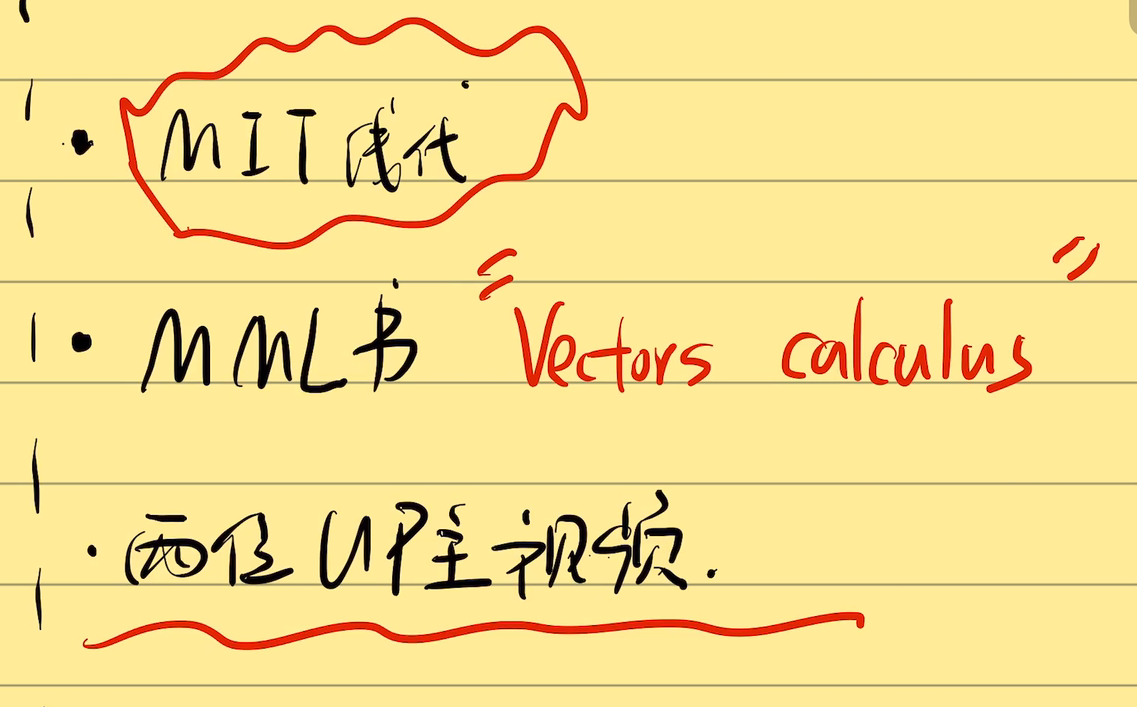 • MIT线代
• MML书 "Vectors calculus"
· 两位UP主视频.